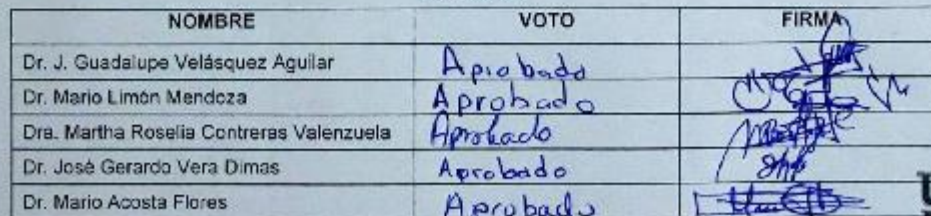 NOMBRE VOTO FIRMA
Dr. J. Guadalupe Velásquez Aguilar Aprobado
Dr. Mario Limón Mendoza Aprobado
Dra. Martha Roselia Contreras Valenzuela Aprobado
Dr. José Gerardo Vera Dimas Aprobado
Dr. Mario Acosta Flores Aprobado